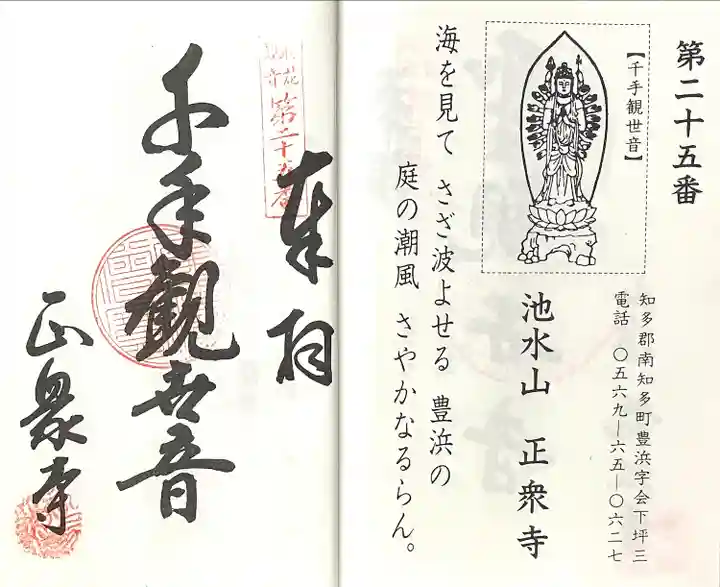 第二十五番
【千手観世音】
知多郡南知多町豊浜字会下坪三
電話 〇五六九―六五―〇六二七
池水山 正衆寺
海を見て さざ波よせる 豊浜の
庭の潮風 さやかなるらん。
奉拝
第二十五番
千手観世音
正衆寺